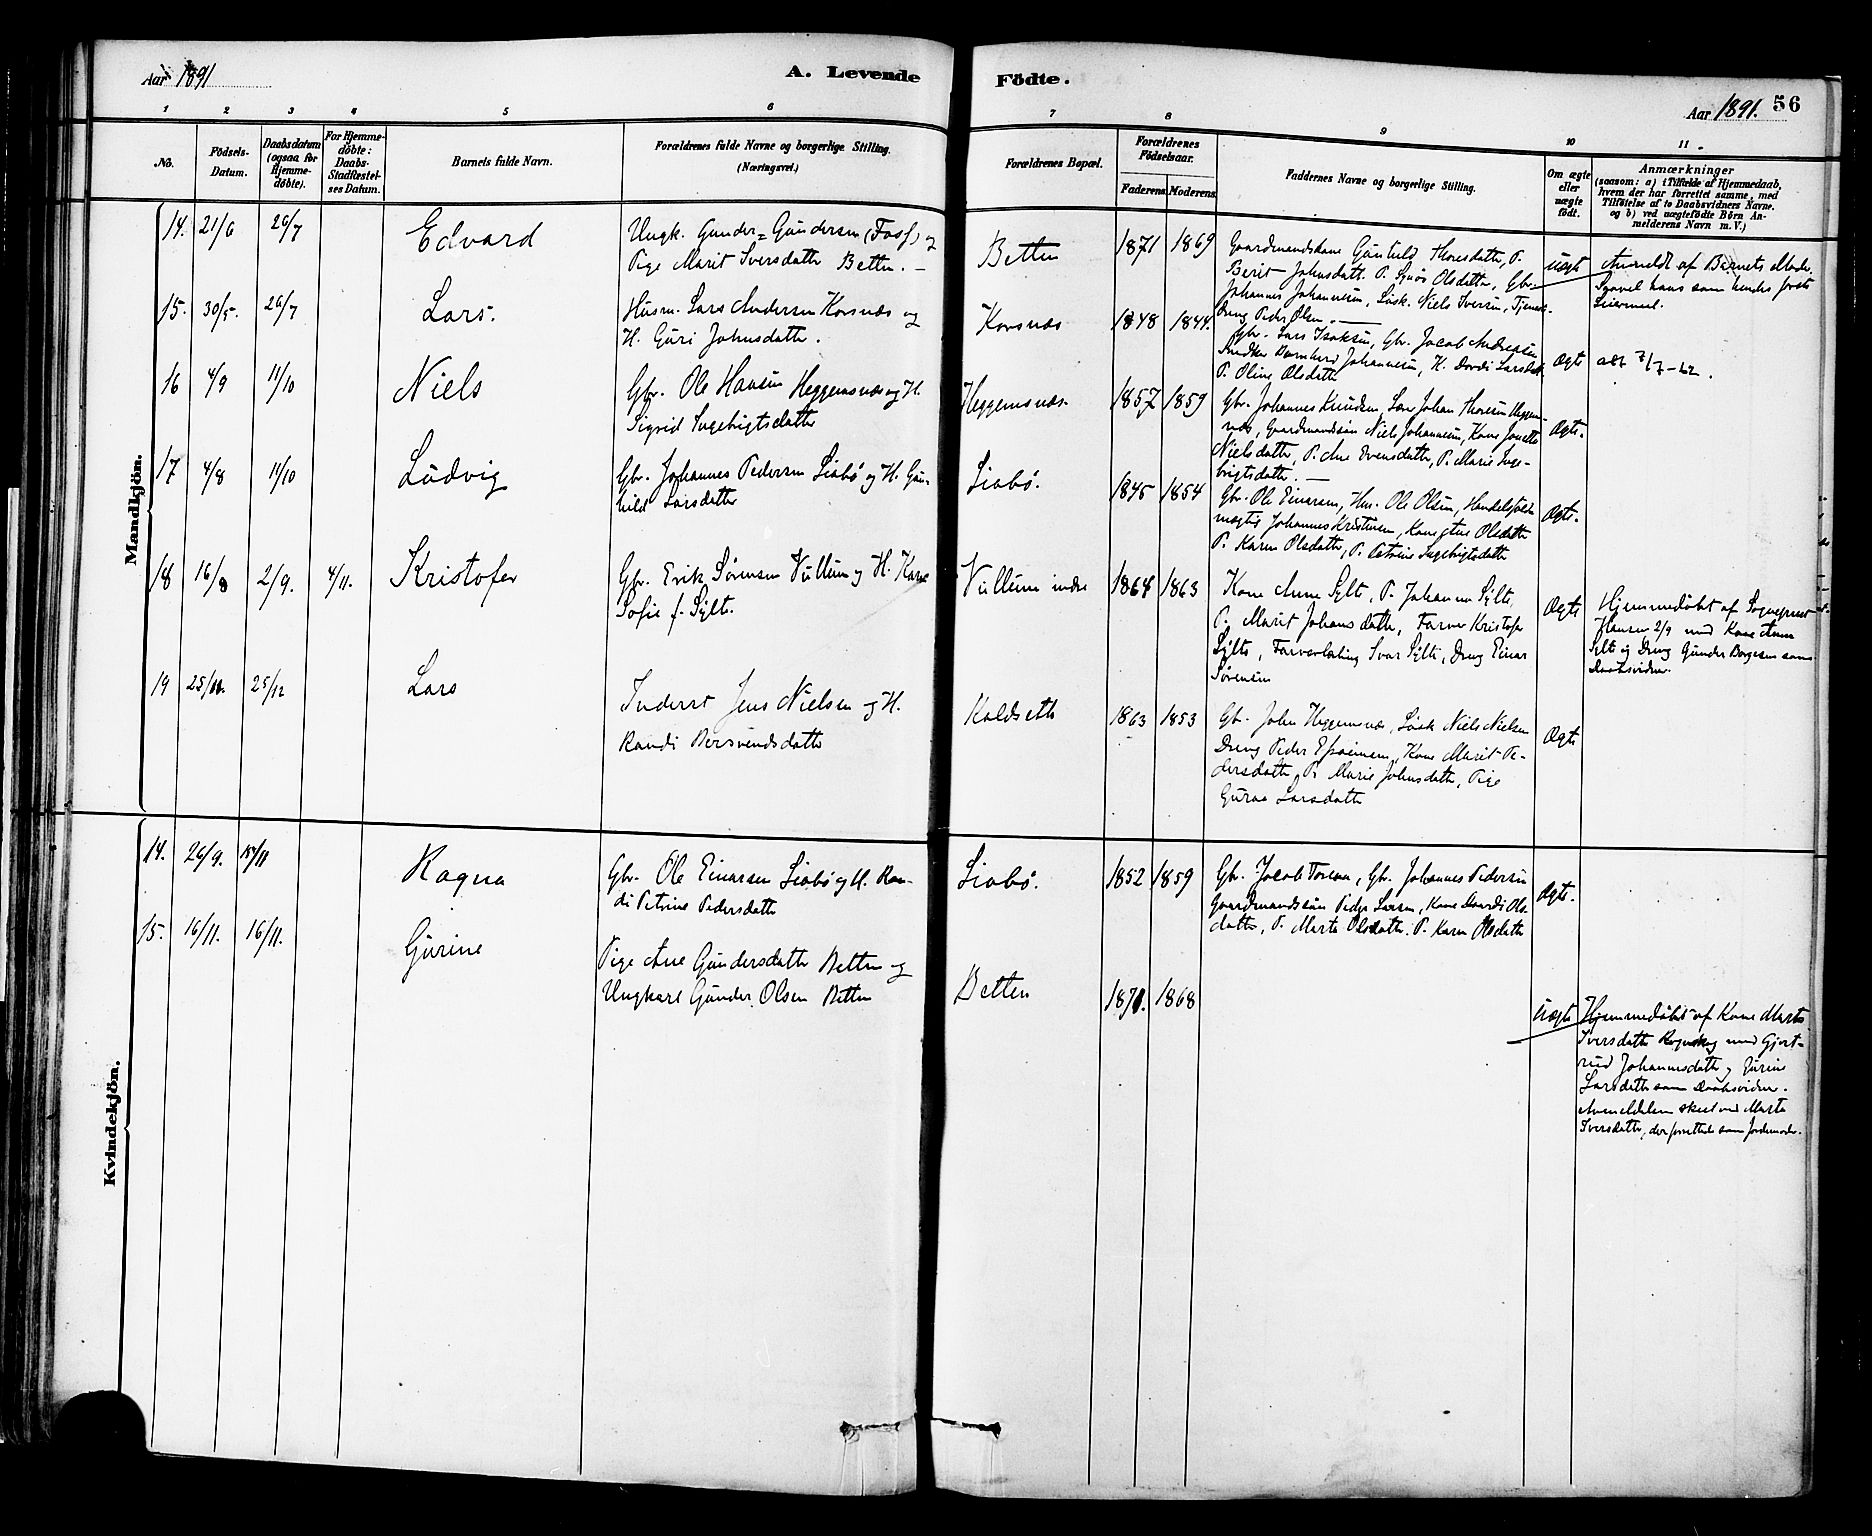 Aar 1891
A. Levende
Födte.
Aar 1891.
56
1 2 3 4 5 6 7 8 9 10 11
No.
Födsels-Datum.
Daabsdatum (ogsaa for Hjemmedöbte).
For Hjemmedöbte: Daabs-Stadfæstelses Datum.
Barnets fulde Navn.
Forældrenes fulde Navne og borgerlige Stilling.
(Næringsvei.)
Forældrenes Bopæl.
Forældrenes Födselsaar.
Faderens Moderens
Faddernes Navne og borgerlige Stilling.
Om ægte eller uægte födt.
Anmærkninger
(saasom: a) i Tilfælde af Hjemmedaab,
hvem der har forrettet samme, med
Tilföielse af to Daabsvidners Navne.
og b) ved uægtefödte Börn An-
melderens Navn m. V.)
Mandkjön.
14. 21/6 26/7 Edvard
Ungk. Gunder Gundersen (Foss) og
Pige Marit Iversdatter Betten. —
Betten 1871 1869
Gaardmandskone Gunhild Thoresdatter, P.
Berit Johnsdatt. P. Synøv Olsdatter, Gbr.
Johannes Johannesen, Løsk. Niels Iversen, Tjeneste-
dreng Peder Olsen. —
Uægt
Anmeldt af Barnets Moder.
Saavel hans som hendes første
Leiermaal.
15. 30/5. 26/7 Lars.
Husm. Lars Andersen Korsnæs og
H. Guri Johnsdatter.
Korsnæs 1848 1844.
Gbr. Lars Isaksen, Gbr. Jacob Andreasen
Snedker Bernhard Johannesen, K. Dordi Larsdatt.
P. Oline Olsdatter
Ægte
16 4/9 11/10 Niels
Gbr. Ole Hansen Heggemsnæs og H.
Sigrid Ingebrigtsdatter
Heggemsnæs 1857 1859
Gbr. Johannes Knudsen, Søn Johan Thoresen Heggem-
næs, Gaardmandssøn Niels Johannesen, Kone Jonetta
Nielsdatter, P. Ane Evensdatter, P. Marie Inge-
brigtsdatter. —
Ægte.
17 4/8 11/10 Ludvig
Gbr. Johannes Pedersen Liabø og H. Gun-
hild Larsdatter
Liabø. 1845 1854
Gbr. Ole Einarsen, Hm. Ole Olsen, Handelsfuld-
mægtig Johannes Kristensen, Kone Stine Olsdatter
P. Karen Olsdatter, P. Petrine Ingebrigtsdatter
Ægte.
18 16/8 2/9. 4/11. Kristofer
Gbr. Erik Sørensen Vullum og H. Karen
Sofie f. Sylte.
Vullum indre 1864 1863
Kone Anne Sylte, P. Johanna Sylte,
P. Marit Johansdatter, Farver Kristofer
Sylte, Farverlærling Ivar Sylte, Dreng Einar
Sørensen
Ægte
Hjemmedøbt af Sognepræst
Hansen 2/9 med Kone Anne
Sylte og Dreng Gunder Borgesen som
Daabsvidner.
19 25/11. 25/12 Lars
Inderst Jens Nielsen og H.
Randi Bersvendsdatter
Koldseth 1863 1853
Gbr. John Heggemsnæs, Løsk Niels Nielsen
Dreng Peder Efraimsen, Kone Marit Pe-
dersdatter, P. Marie Johnsdatter, Pige
Guraa Larsdatter
Ægte
Kvindekjön.
14. 26/9. 15/11 Ragna
Gbr. Ole Einarsen Liabø og H. Ran-
di Petrine Pedersdatter
Liabø. 1852 1859
Gbr. Jacob Toreaa, Gbr. Johannes Pedersen
Gaardmandssøn Peder Larsen, Kone Dordi Ols-
datter, P. Marta Olsdatter. P. Karen Olsdatter
Ægte.
15. 16/11. 16/11. Gurine
Pige Ane Gundersdatter Betten og
Ungkarl Gunder Olsen Betten
Betten 1871. 1868
Uægte
Hjemmedøbt af Kone Marta
Iversdatter med Gjert-
rud Johannesdatter og Gurine
Larsdatter som Daabsvidner.
Anmeldelsen skeet ved Marta
Iversdatter, der forrettede som Jordemoder.